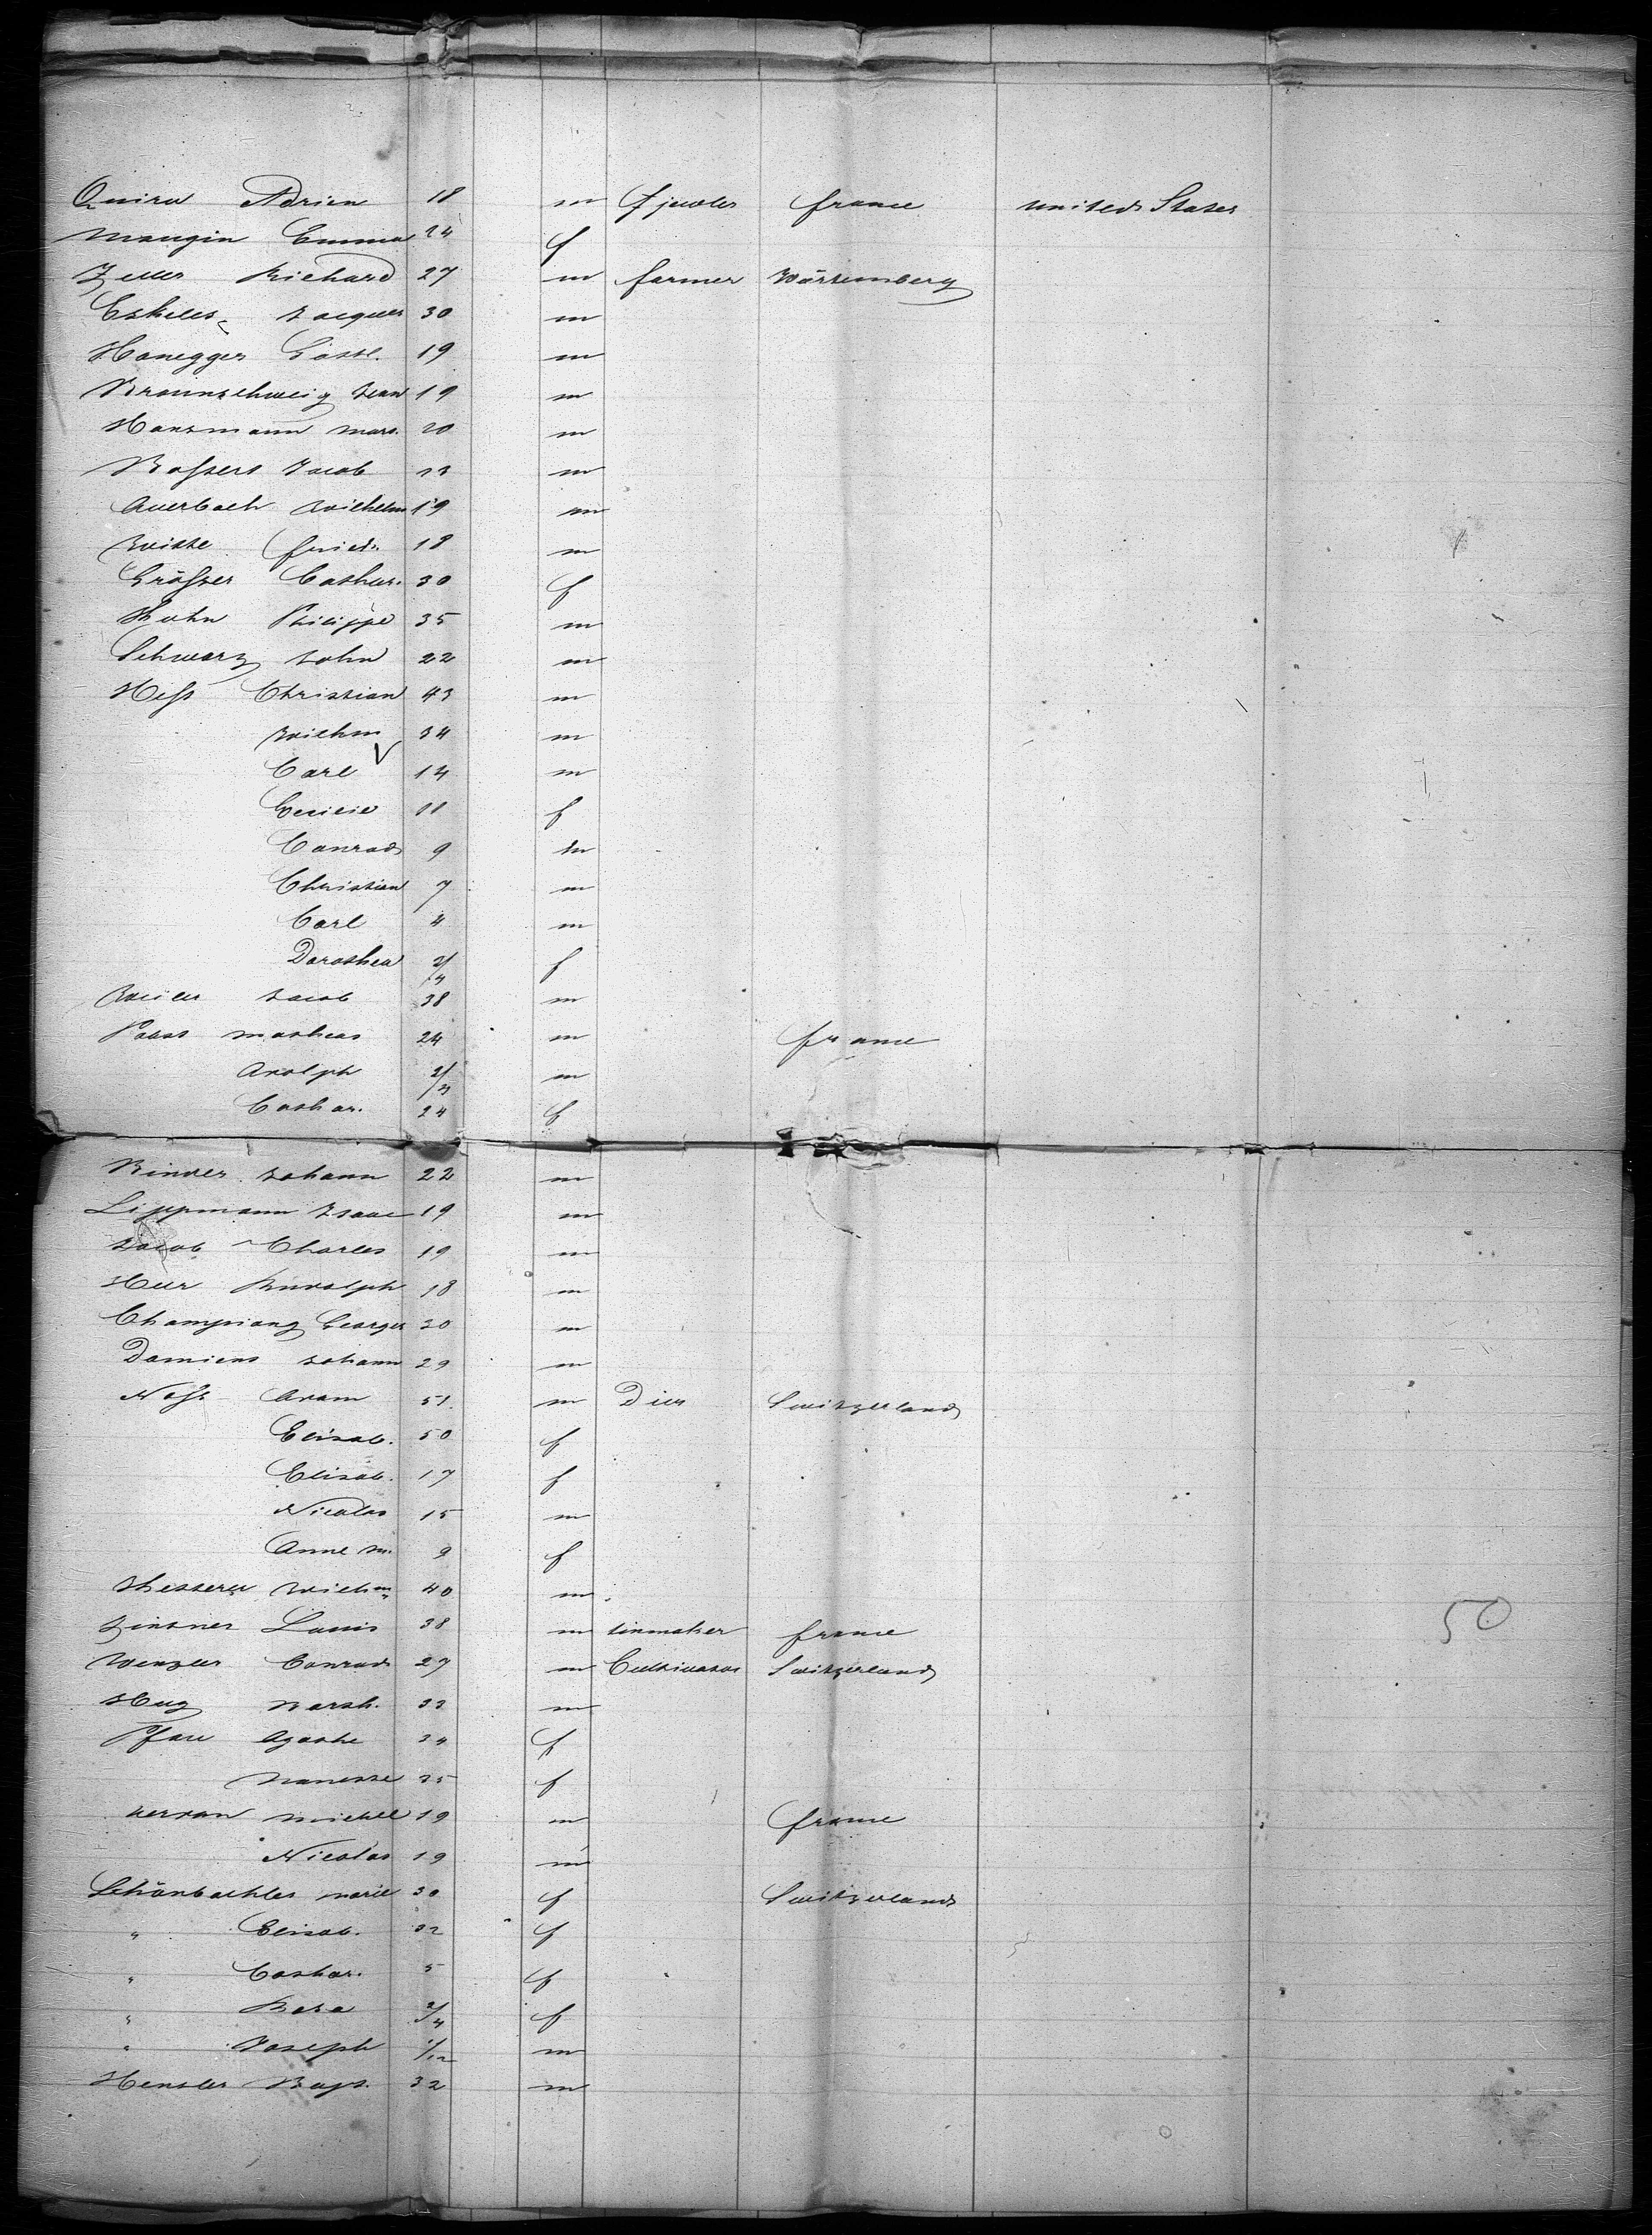 Quiru Adrien 18 m jeweler france united States
Mangin Emma 24 f
Zeller Richard 27 m farmer Würtemberg
Eskeles Jacques 30 m
Honegger Gottl. 19 m
Braunschweig Jean 19 m
Hansmann Marc. 20 m
Bossert Jacob 23 m
Auerbach Wilhelm 19 m
Witte fried. 18 m
Grösser Cathar. 30 f
Huhn Philippe 35 m
Schwarz John 22 m
Hess Christian 43 m
Wilhm 34 m
Carl 14 m
Emilie 11 f
Conrad 9 m
Christian 7 m
Carl 4 m
Dorothea 2/4 f
Weiler Jacob 38 m
Pabst Matheas 24 m france
Adolph 2/3 m
Cathar. 24 f
Binder Johann 22 m
Lippmann Isaac 19 m
Jacob Charles 19 m
Heer Rudolph 18 m
Champiang Georges 30 m
Damiens Johann 29 m
Noss Adam 51 m Dier Switzerland
Elisab. 50 f
Elisab. 17 f
Nicolas 15 m
Anne M. 9 f
Wilhm 40 m
Zintner Louis 38 m tinmaker france
Wenzler Conrad 27 m Cultivator Switzerland
50
Hug Barth. 33 m
Pfau Agathe 24 f
Nanette 25 f
Michel 19 m france
Nicolas 19 m
Schönbachler Marie 30 f Switzerland
" Elisab. 32 f
" Cathar. 5 f
" Rosa 2/4 f
" Joseph 1/12 m
Hensler Bapt. 32 m